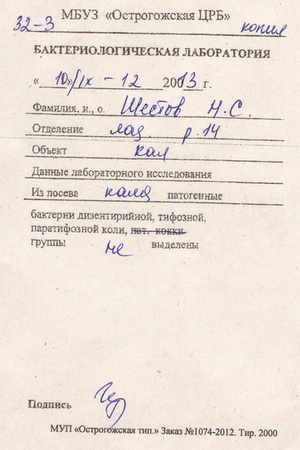 МБУЗ «Острогожская ЦРБ»
32-3 копия
БАКТЕРИОЛОГИЧЕСКАЯ ЛАБОРАТОРИЯ
« 10/IX - 12 2013 г.
Фамилия, и., о. Шестов Н.С.
Отделение р.14
Объект кал
Данные лабораторного исследования
Из посева кала патогенные
бактерни дизентирийной, тифозной,
паратифозной коли, пат. кокки
группы не выделены
Подпись
МУП «Острогожская тип.» Заказ №1074-2012. Тир. 2000